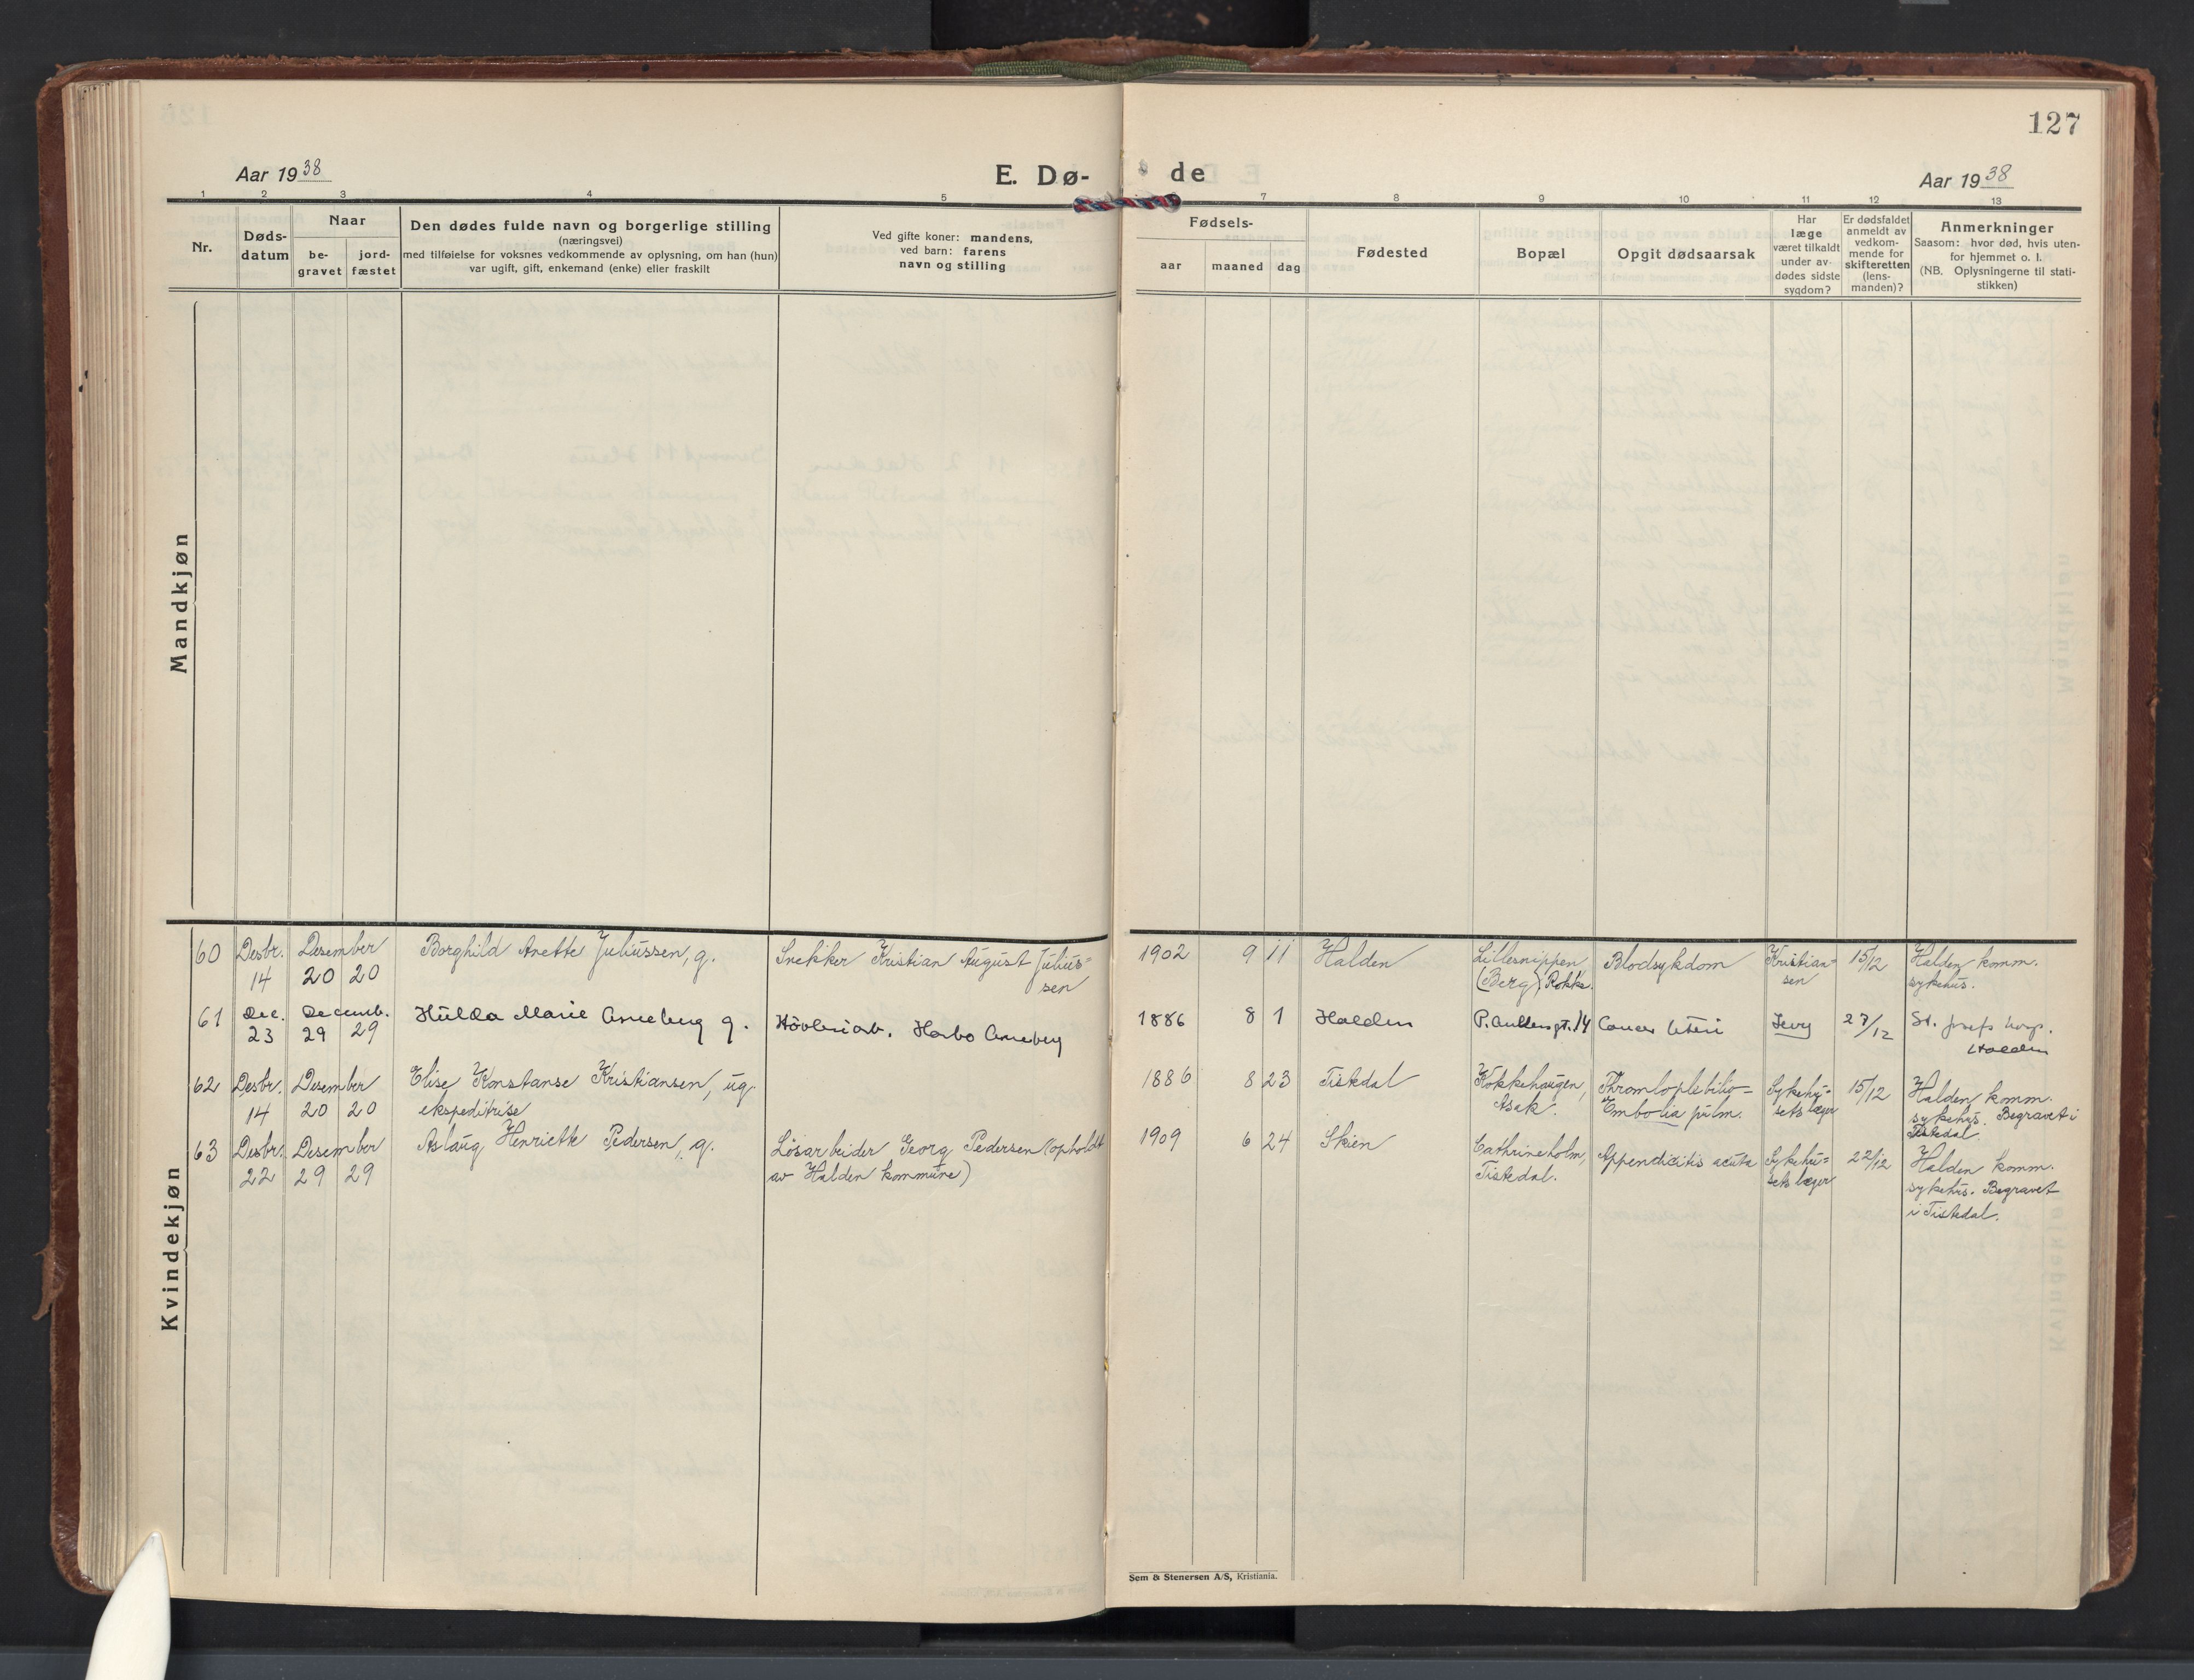 127
Aar 1938
E. Dø-
de
Aar 1938
1 2 3 4 5 7 8 9 10 11 12 13
Nr.
Døds-
datum
Naar
be-
gravet
jord-
fæstet
Den dødes fulde navn og borgerlige stilling
(næringsvei)
med tilføielse for voksnes vedkommende av oplysning, om han (hun)
var ugift, gift, enkemand (enke) eller fraskilt
Ved gifte koner: mandens,
ved barn: farens
navn og stilling
Fødsels-
aar
maaned
dag
Fødested
Bopæl
Opgit dødsaarsak
Har
læge
været tilkaldt
under av-
dødes sidste
sygdom?
Er dødsfaldet
anmeldt av
vedkom-
mende for
skifteretten
(lens-
manden)?
Anmerkninger
Saasom: hvor død, hvis uten-
for hjemmet o. l.
(NB. Oplysningerne til stati-
stikken)
Mandkjøn
Kvindekjøn
60 Desbr. Desember Borghild Anette Juliussen, g. Snekker Kristian August Julius= 1902 9 11 Halden Lillesnippen Blodsykdom Kristian= 15/12 Halden komm.
14 20 20 sen (Berg) Rokke. sen sykehus.
61 Dec. Decemb. Hulda Marie Arneberg g. Høvleriarb. Harbo Arneberg 1886 8 1 Halden 14 Cancer Uteri 27/12 St. Josefs hosp.
23 29 29 Halden
62 Desbr. Desember Elise Konstanse Kristiansen, ug. 1886 8 23 Tistedal Sykehu= 15/12 Halden komm.
14 20 20 ekspeditrise Asak. Embolia pulm. sets læger sykehus. Begravet i
Tistedal.
63 Desbr. Desember Aslaug Henriette Pedersen, g. Løsarbeider Georg Pedersen (opholdt 1909 6 24 Skien Cathrineholm, Appendicitis acuta Sykehu= 22/12 Halden komm.
22 29 29 av Halden kommune) Tistedal. sets læger sykehus. Begravet
i Tistedal.
Sem & Stenersen A/S, Kristiania.